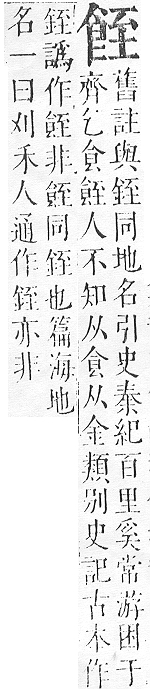 䬹
舊註與銍同地名引史秦紀百里奚常游困于
齊乞食䬹人不知从食从金類別史記古本作
銍譌作䬹非䬹同銍也篇海地
名一曰刈禾人通作銍亦非